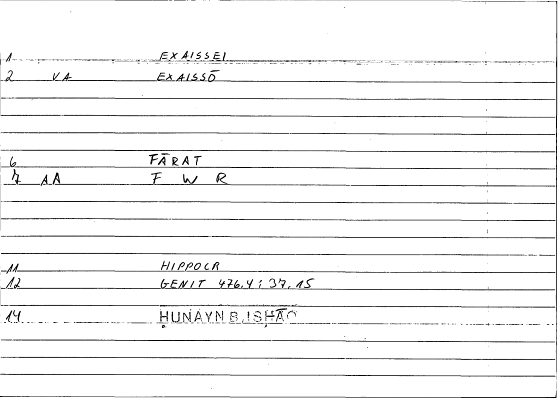 1 EXAISSEI
2 VA EXAISSŌ
6 FĀRAT
7 AA F W R
11 HIPPOCR
12 GENIT 476.4 ; 37.15
14 ḤUNAYN B. ISḤĀQ